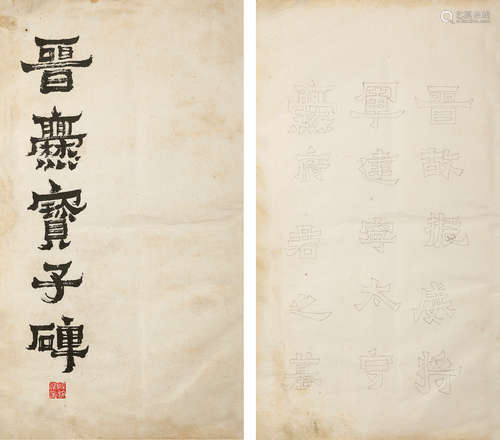 晉爨寶子碑
晉故振威將
軍建寧太守
爨府君之墓